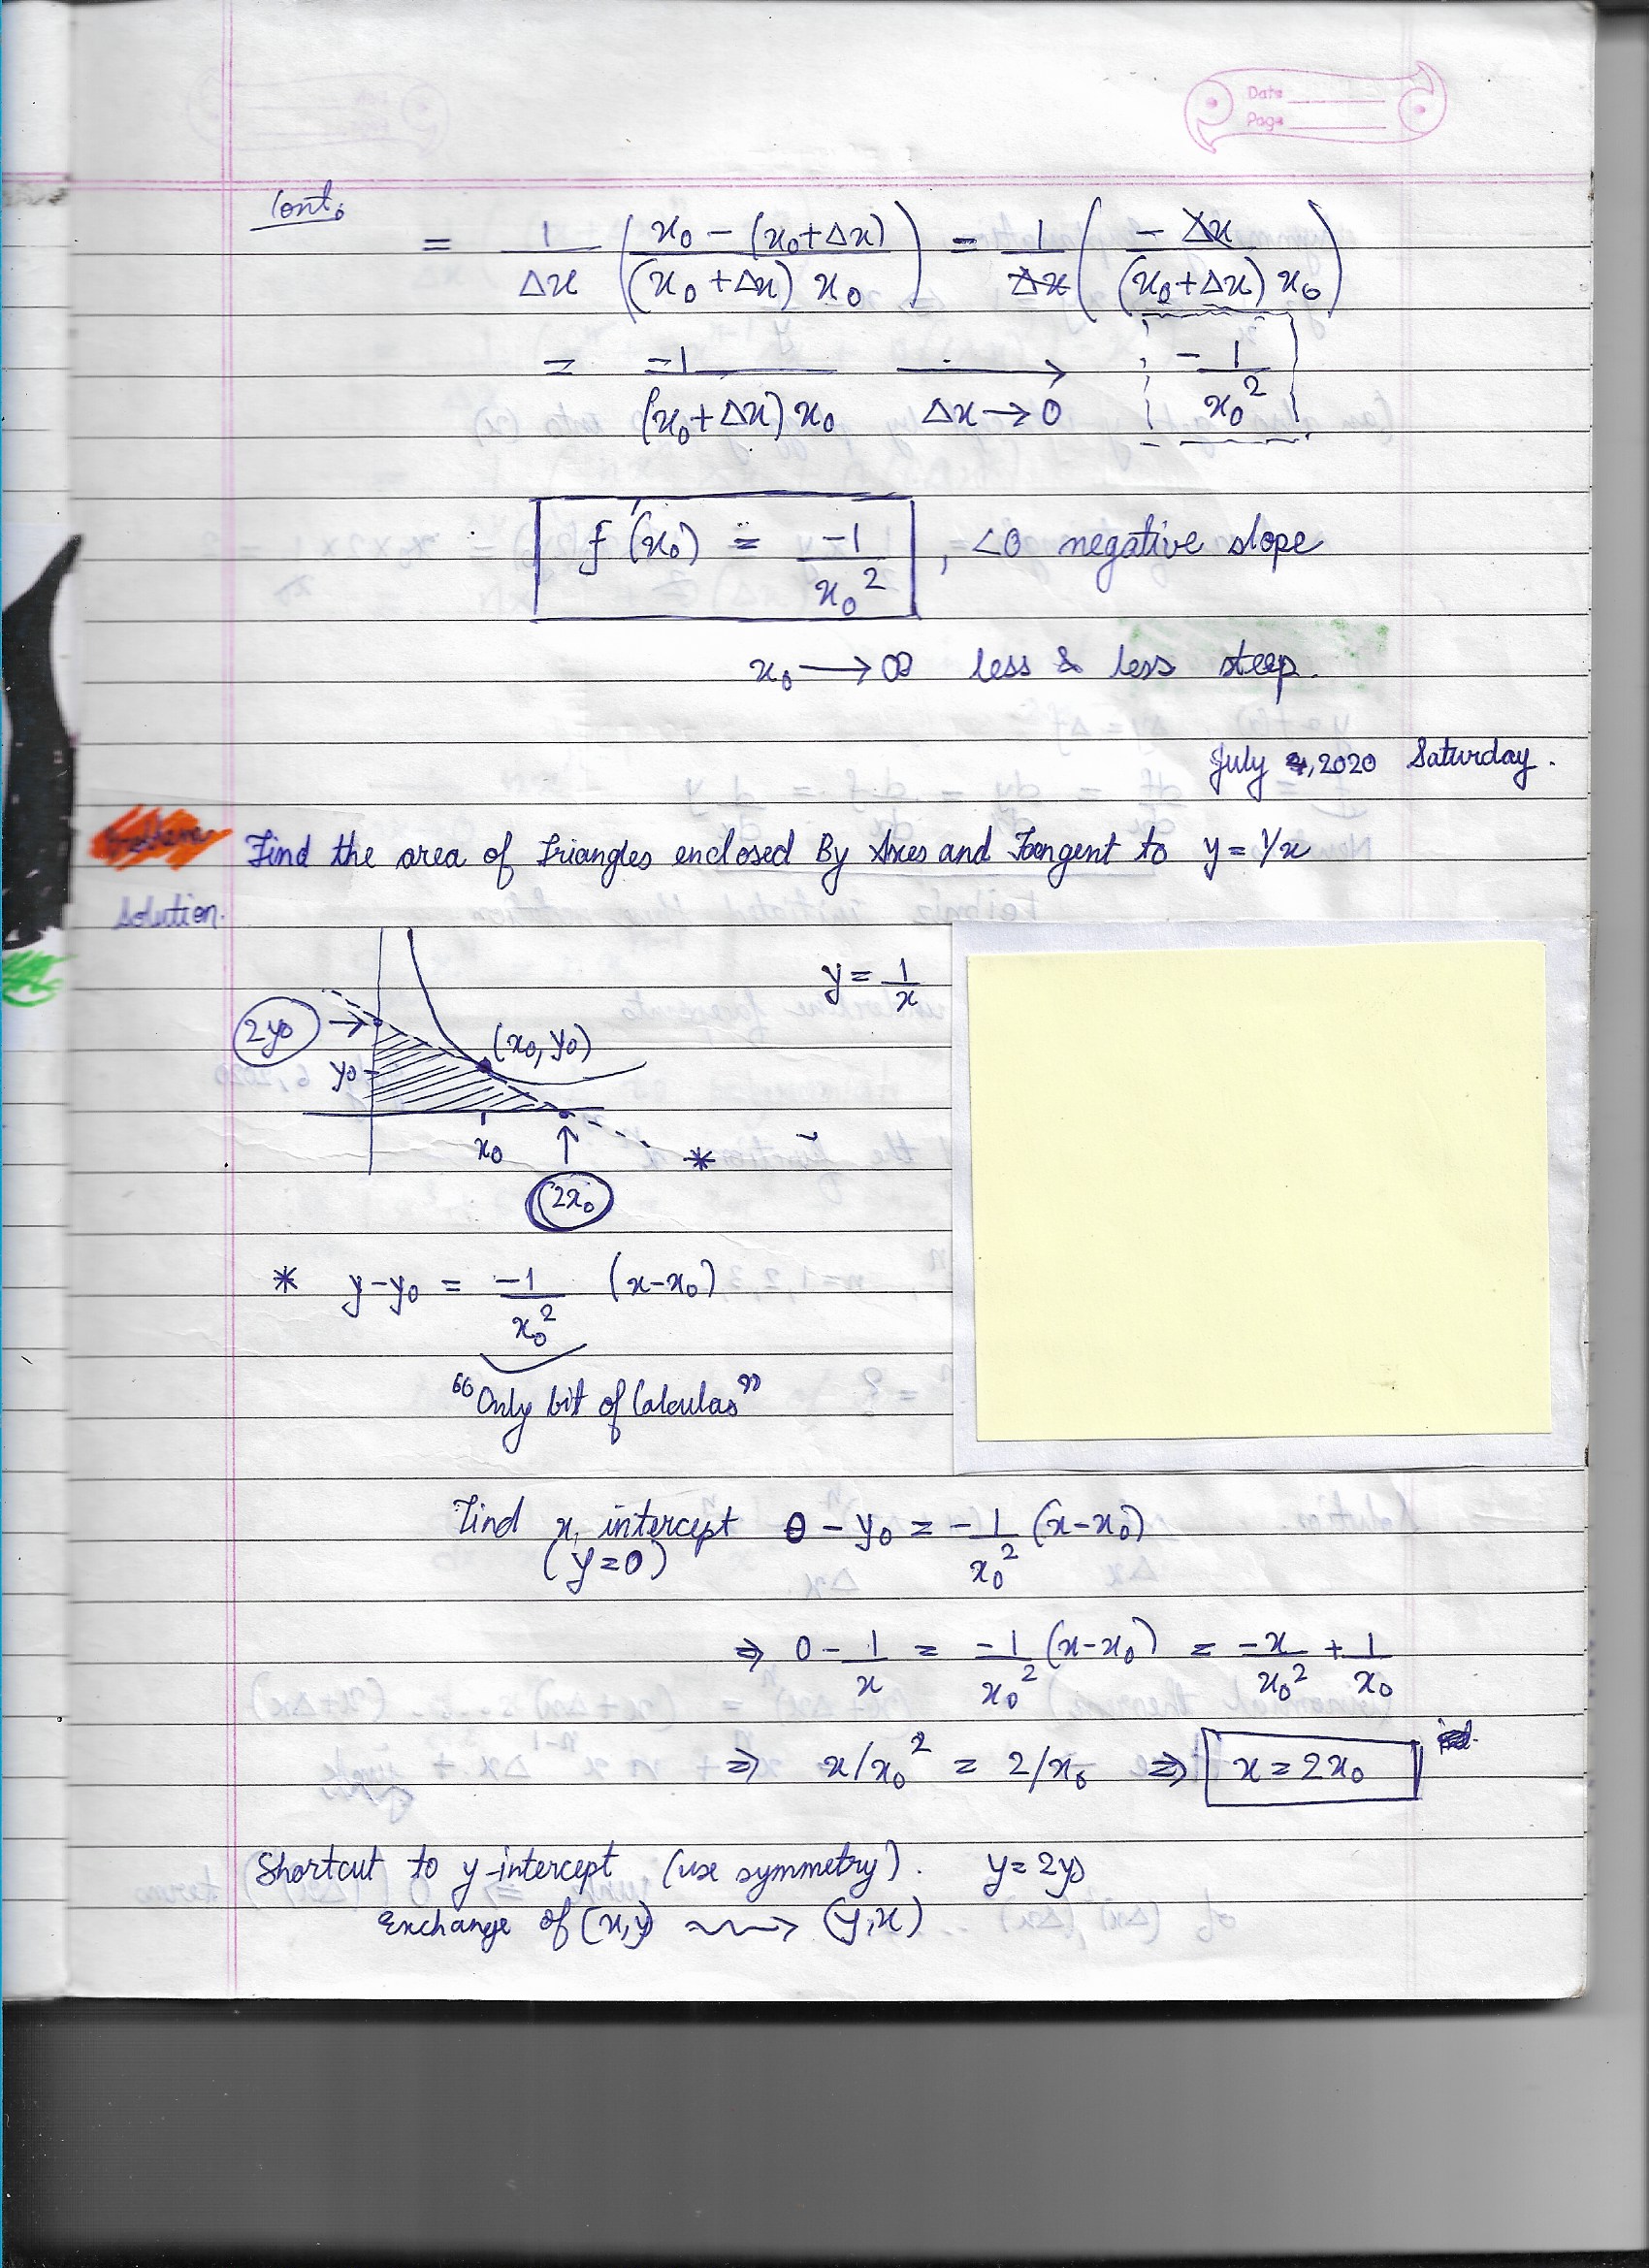 Date
Page
Cont.
= 1/Δx ( (x₀ - (x₀+Δx)) / ((x₀+Δx) x₀) ) = 1/Δx ( -Δx / ((x₀+Δx) x₀) )
= -1 / ((x₀+Δx) x₀) ⟶ Δx→0 -1/x₀²
f'(x₀) = -1/x₀² , <0 negative slope
x₀ ⟶ ∞ less & less steep.
July 4, 2020 Saturday.
Problem Find the area of Triangles enclosed By Axes and Tangent to y = 1/x
Solution.
y = 1/x
2y₀ → (x₀, y₀)
y₀
x₀ ↑ *
2x₀
* y-y₀ = -1/x₀² (x-x₀)
"Only bit of Calculas"
Find x, intercept 0 - y₀ = -1/x₀² (x-x₀)
(y=0)
⇒ 0 - 1/x = -1/x₀² (x-x₀) = -x/x₀² + 1/x₀
⇒ x/x₀² = 2/x₀ ⇒ x = 2x₀
Shortcut to y-intercept (use symmetry). y = 2y₀
Exchange of (x,y) ⟿ (y,x)